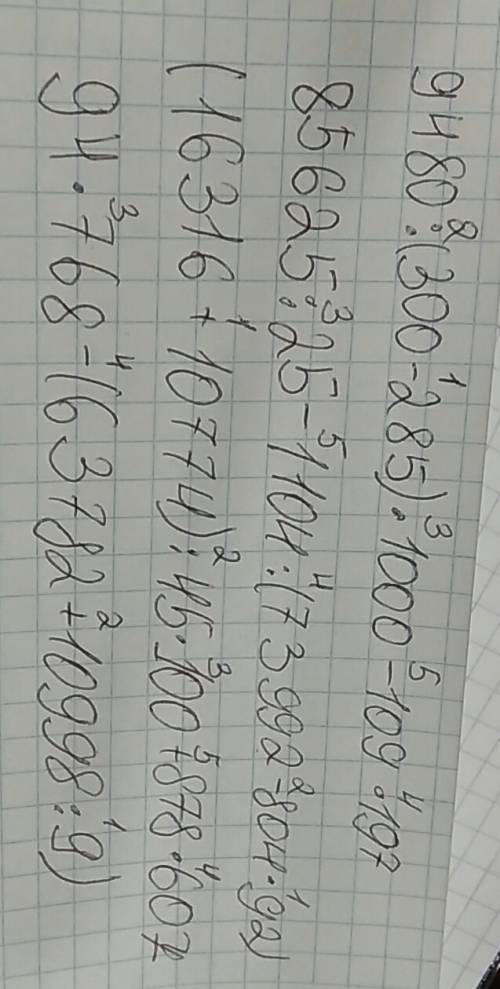 9480 :² (300 -¹ 285) ·³ 1000 -⁵ 109 ·⁴ 197
85625 :³ 25 -⁵ 1104 :⁴ (73992 -² 804 ·¹ 92)
(16316 +¹ 10774) :² 45 ·³ 100 +⁵ 878 ·⁴ 607
94 ·³ 768 -⁴ (63782 +² 10998 :¹ 9)